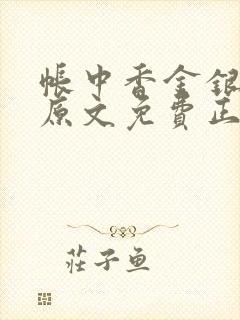 帳中香金銀
原文免費正
莊子魚